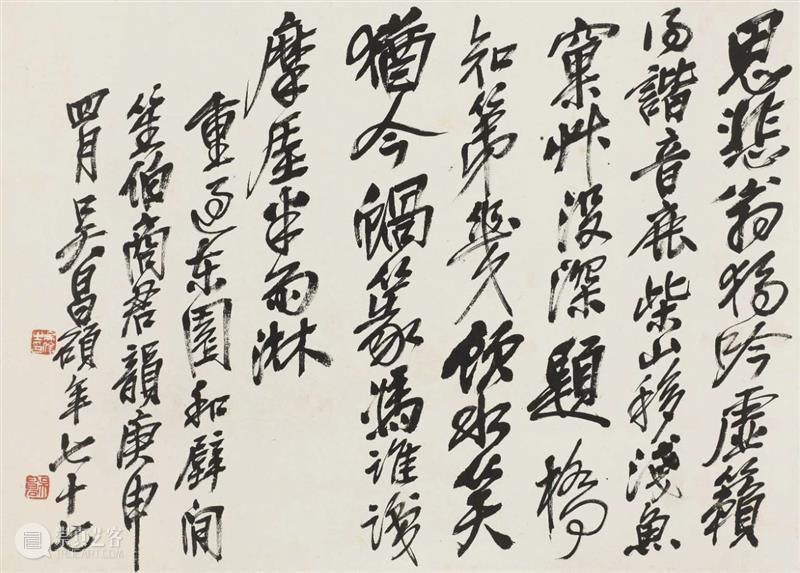 思悲翁獨吟虛籟
得諧音鹿柴山移淺魚
窠艸沒深題橋
知第幾飲水笑
猶今蝸篆馮誰識
摩厓半雨淋
重過東園和壁間
笙伯商君韻庚申
四月吳昌碩年七十七